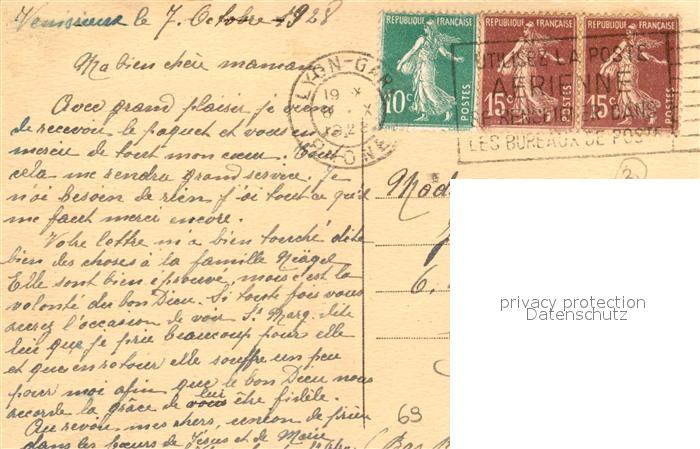 Venissieux le 7. Octobre 1928
REPUBLIQUE FRANÇAISE
10c
POSTES
REPUBLIQUE FRANÇAISE
15c
POSTES
REPUBLIQUE FRANÇAISE
15c
POSTES
LYON-GARE
19 X
RHONE
UTILISEZ LA POSTE
AERIENNE
LES BUREAUX DE POSTE
Ma bien chère maman
Avec grand plaisir je viens
de recevoir le paquet et vous en re
mercie de tout mon cœur. Tout
cela me rendra grand service. Je
n'ai besoin de rien j'ai tout ce qu'il
me faut merci encore.
Votre lettre m'a bien touché dite
bien des choses à la famille
Elle sont bien éprouvé, mais c'est la
volonté du bon Dieu. Si toute fois vous
aurez l'occasion de voir Sr Marg. dite
lui que je prie beaucoup pour elle
et que en retour elle souffre un peu
pour moi afin que le bon Dieu nous
accorde la grâce de lui être fidèle.
Au revoir mes chers, union de prière
dans les cœurs de Jésus et de Marie
2)
6.
69
(Bas
privacy protection
Datenschutz